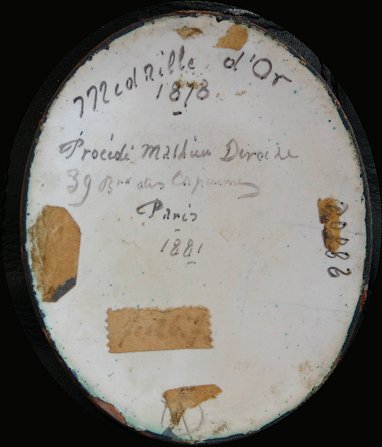 Medaille d'Or
1878
Procédé Mathieu Deroche
39 Bard des Capucines
Paris
1881